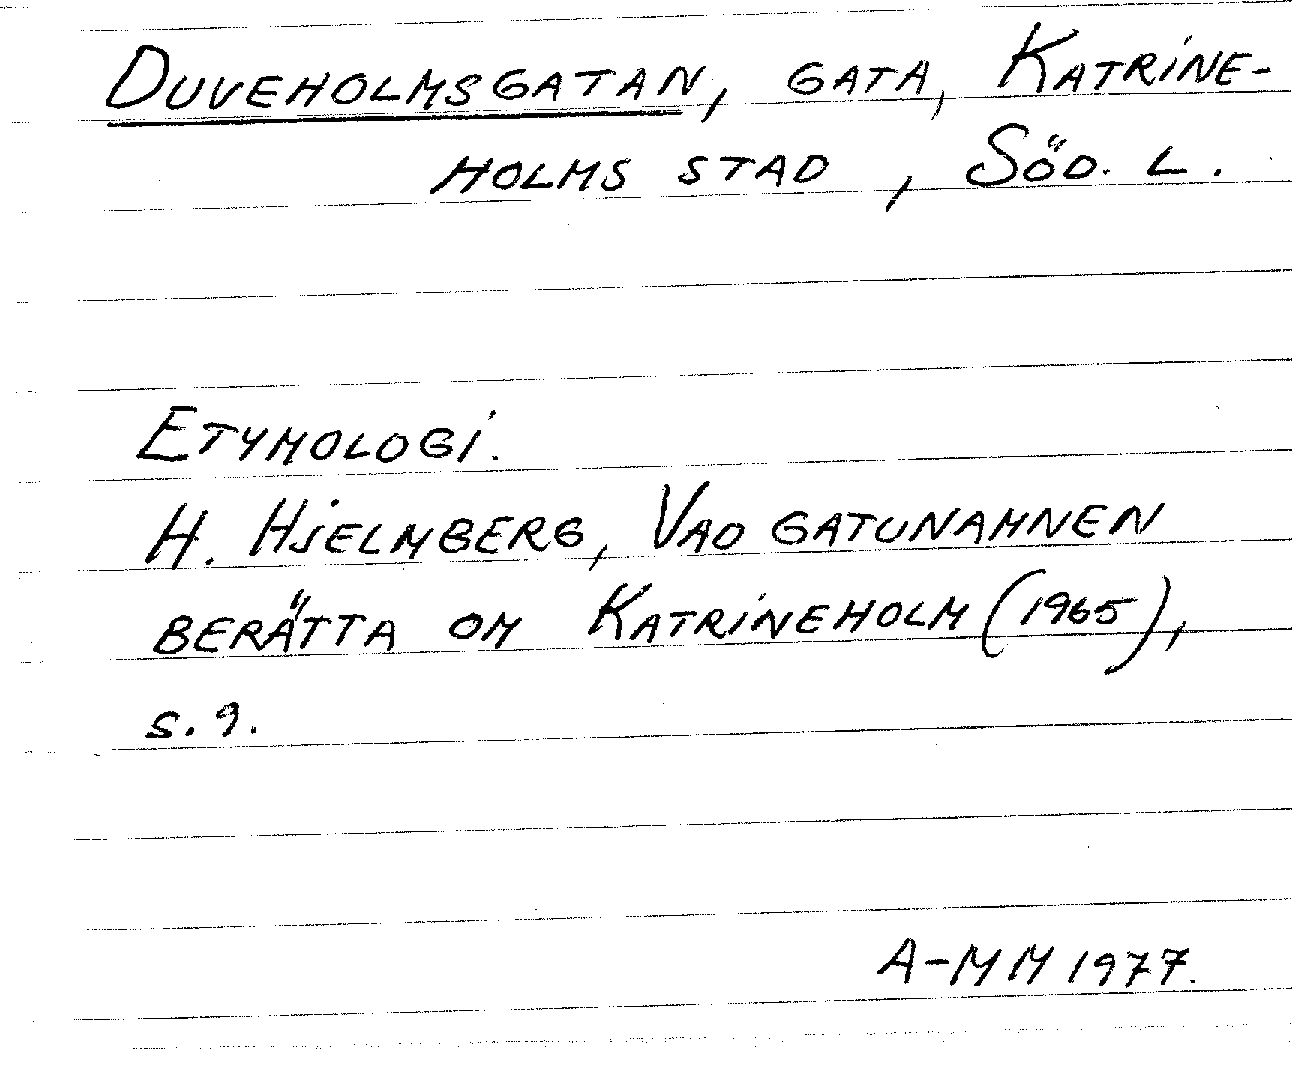 DUVEHOLMSGATAN, GATA, KATRINE-
HOLMS STAD, SÖD. L.
ETYMOLOGI.
H. HJELMBERG, VAD GATUNAMNEN
BERÄTTA OM KATRINEHOLM (1965),
S. 9.
A-MM 1977.